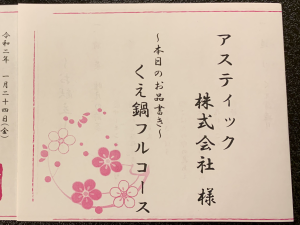 アスティック
株式会社 様
～本日のお品書き～
くえ鍋フルコース
令和二年 一月二十四日(金)